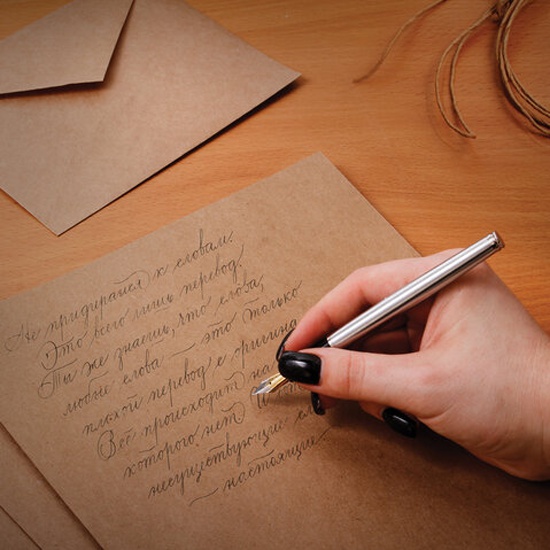 Не придирайся к словам.
Это всего лишь перевод.
Ты же знаешь, что слова,
любые слова — это только
плохой перевод с оригина
Всё происходит на
которого нет
несуществующие сл
— настоящие